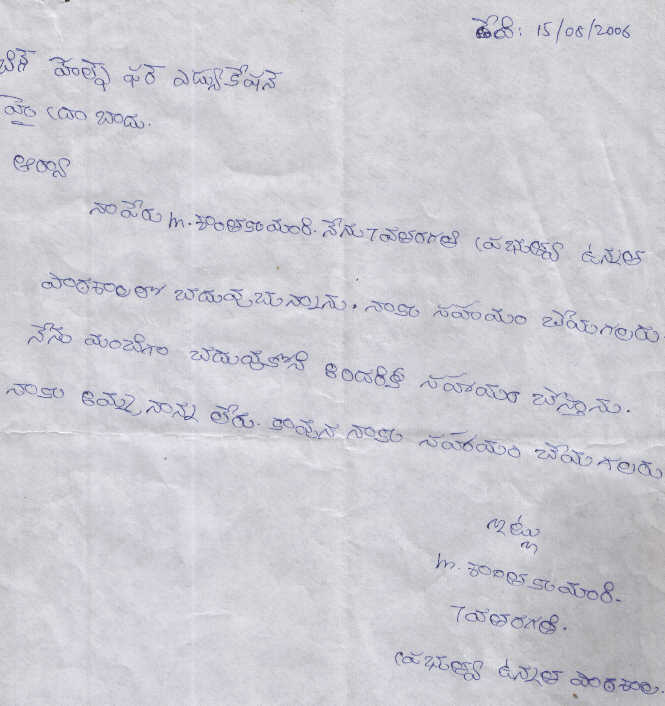 తేది: 15/08/2006
హెల్ప్ ఫర్ ఎడ్యుకేషన్
హైద్రాబాదు.
ఆర్యా
నాపేరు m. శాంతకుమారి. నేను 7వతరగతి ప్రభుత్వ ఉన్నత
పాఠశాలలో చదువుచున్నాను. నాకు సహాయం చేయగలరు.
నేను మంచిగా చదువుకొని అందరికీ సహాయం చేస్తాను.
నాకు అమ్మ నాన్న లేరు. కావున నాకు సహాయం చేయగలరు
ఇట్లు
m. శాంతకుమారి.
7వతరగతి.
ప్రభుత్వ ఉన్నత పాఠశాల.